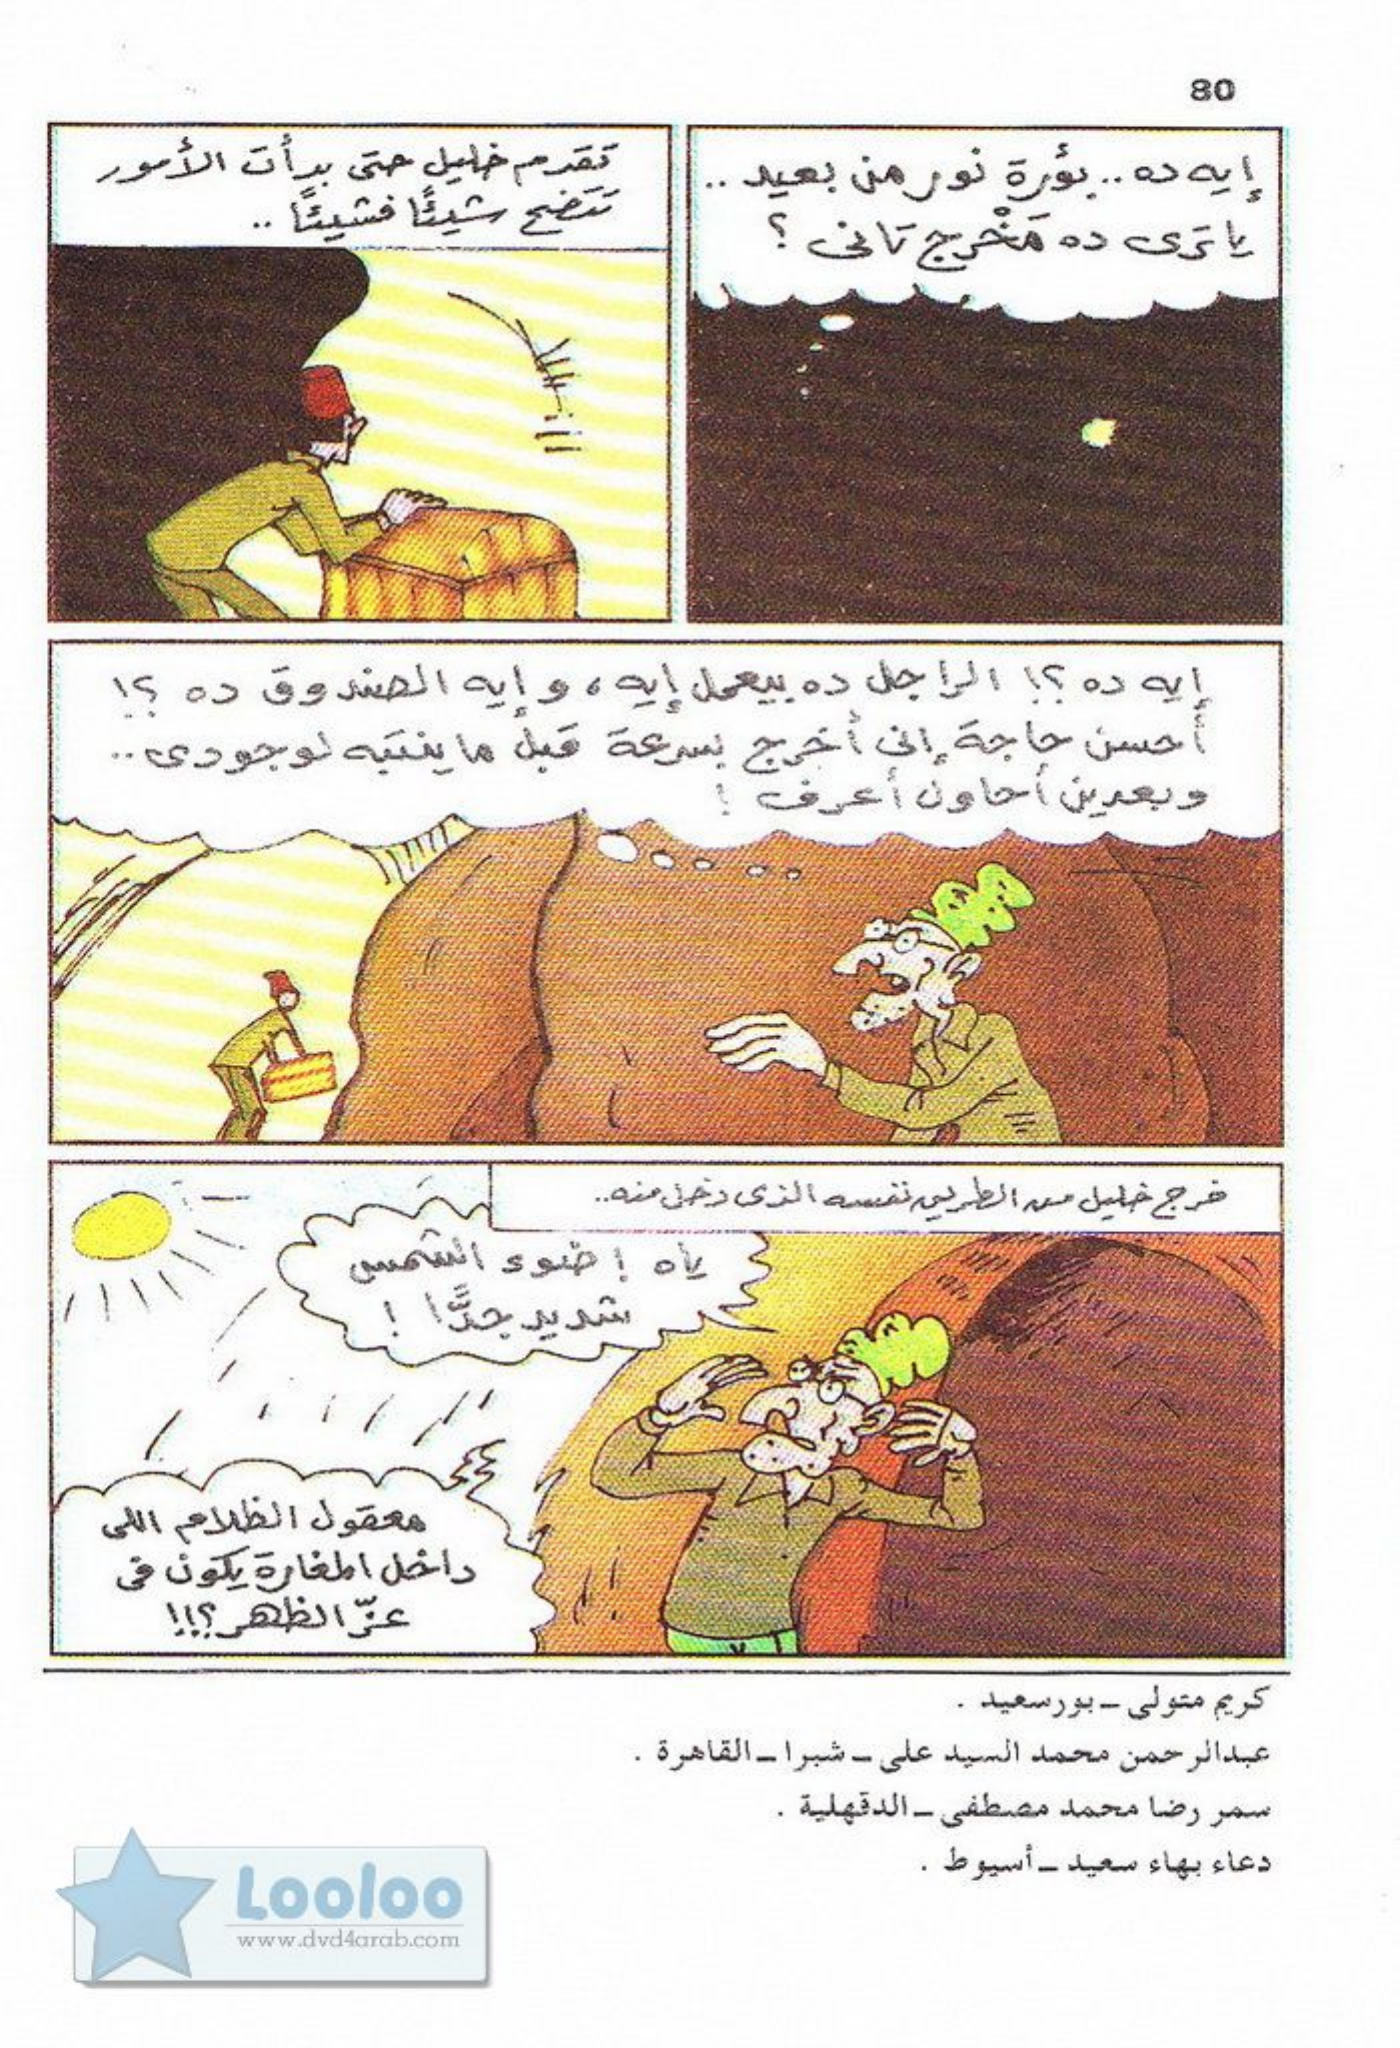 80
إيه ده.. بؤرة نور من بعيد..
يا ترى ده مَخْرج تانى ؟
تقدم خليل حتى بدأت الأمور
تتضح شيئًا فشيئًا ..
إيه ده ؟! الراجل ده بيعمل إيه ، و إيه الصندوق ده ؟!
أحسن حاجة إنى أخرج بسرعة قبل ما ينتبه لوجودى..
وبعدين أحاول أعرف !
خرج خليل من الطريق نفسه الذى دخل منه..
ياه ! ضوء الشمس
شديد جدًّا !
معقول الظلام اللى
داخل المغارة يكون فى
عزّ الظهر ؟!!
كريم متولى ــ بورسعيد .
عبدالرحمن محمد السيد على ــ شبرا ــ القاهرة .
سمر رضا محمد مصطفى ــ الدقهلية .
دعاء بهاء سعيد ــ أسيوط .
Looloo
www.dvd4arab.com